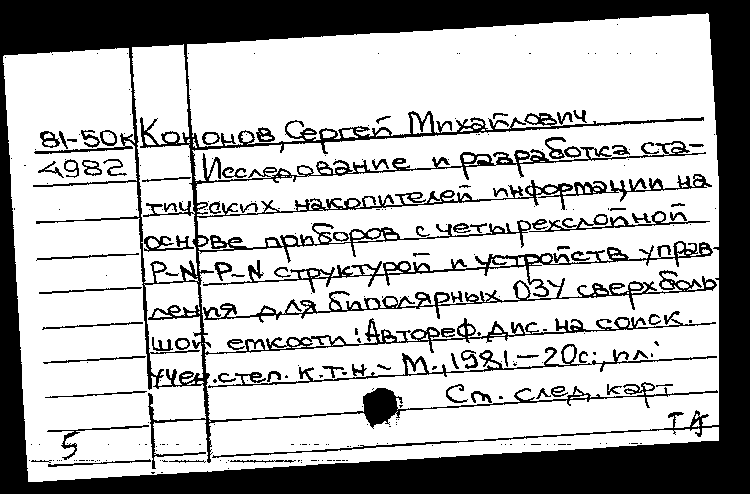 81-50к Кононов, Сергей Михайлович.
4982 Исследование и разработка ста-
тических накопителей информации на
основе приборов с четырехслойной
P-N-P-N структурой и устройств управ-
ления для биполярных ОЗУ сверхболь
шой емкости: Автореф. дис. на соиск.
учен. степ. к.т.н. - М., 1981. - 20с., ил.
См. след. карт
5